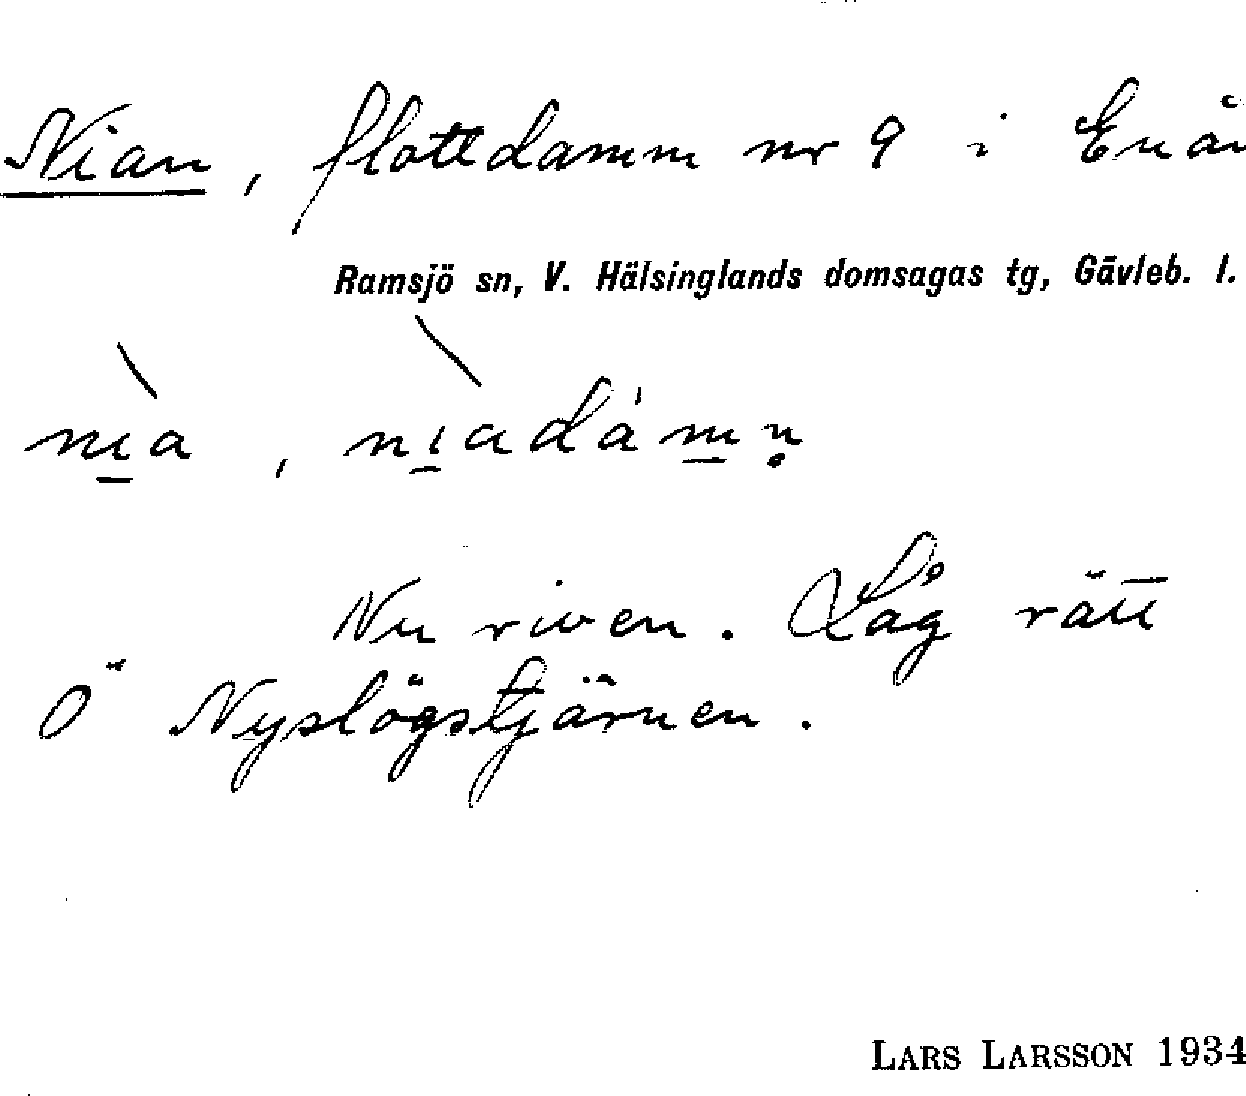 Nian, flottdamm nr 9 i Enån
Ramsjö sn, V. Hälsinglands domsagas tg, Gävleb. l.
nı̱̀a, nı̱̀adám̱n̥
Nu riven. Låg rätt
Ö Nyslögstjärnen.
LARS LARSSON 1934